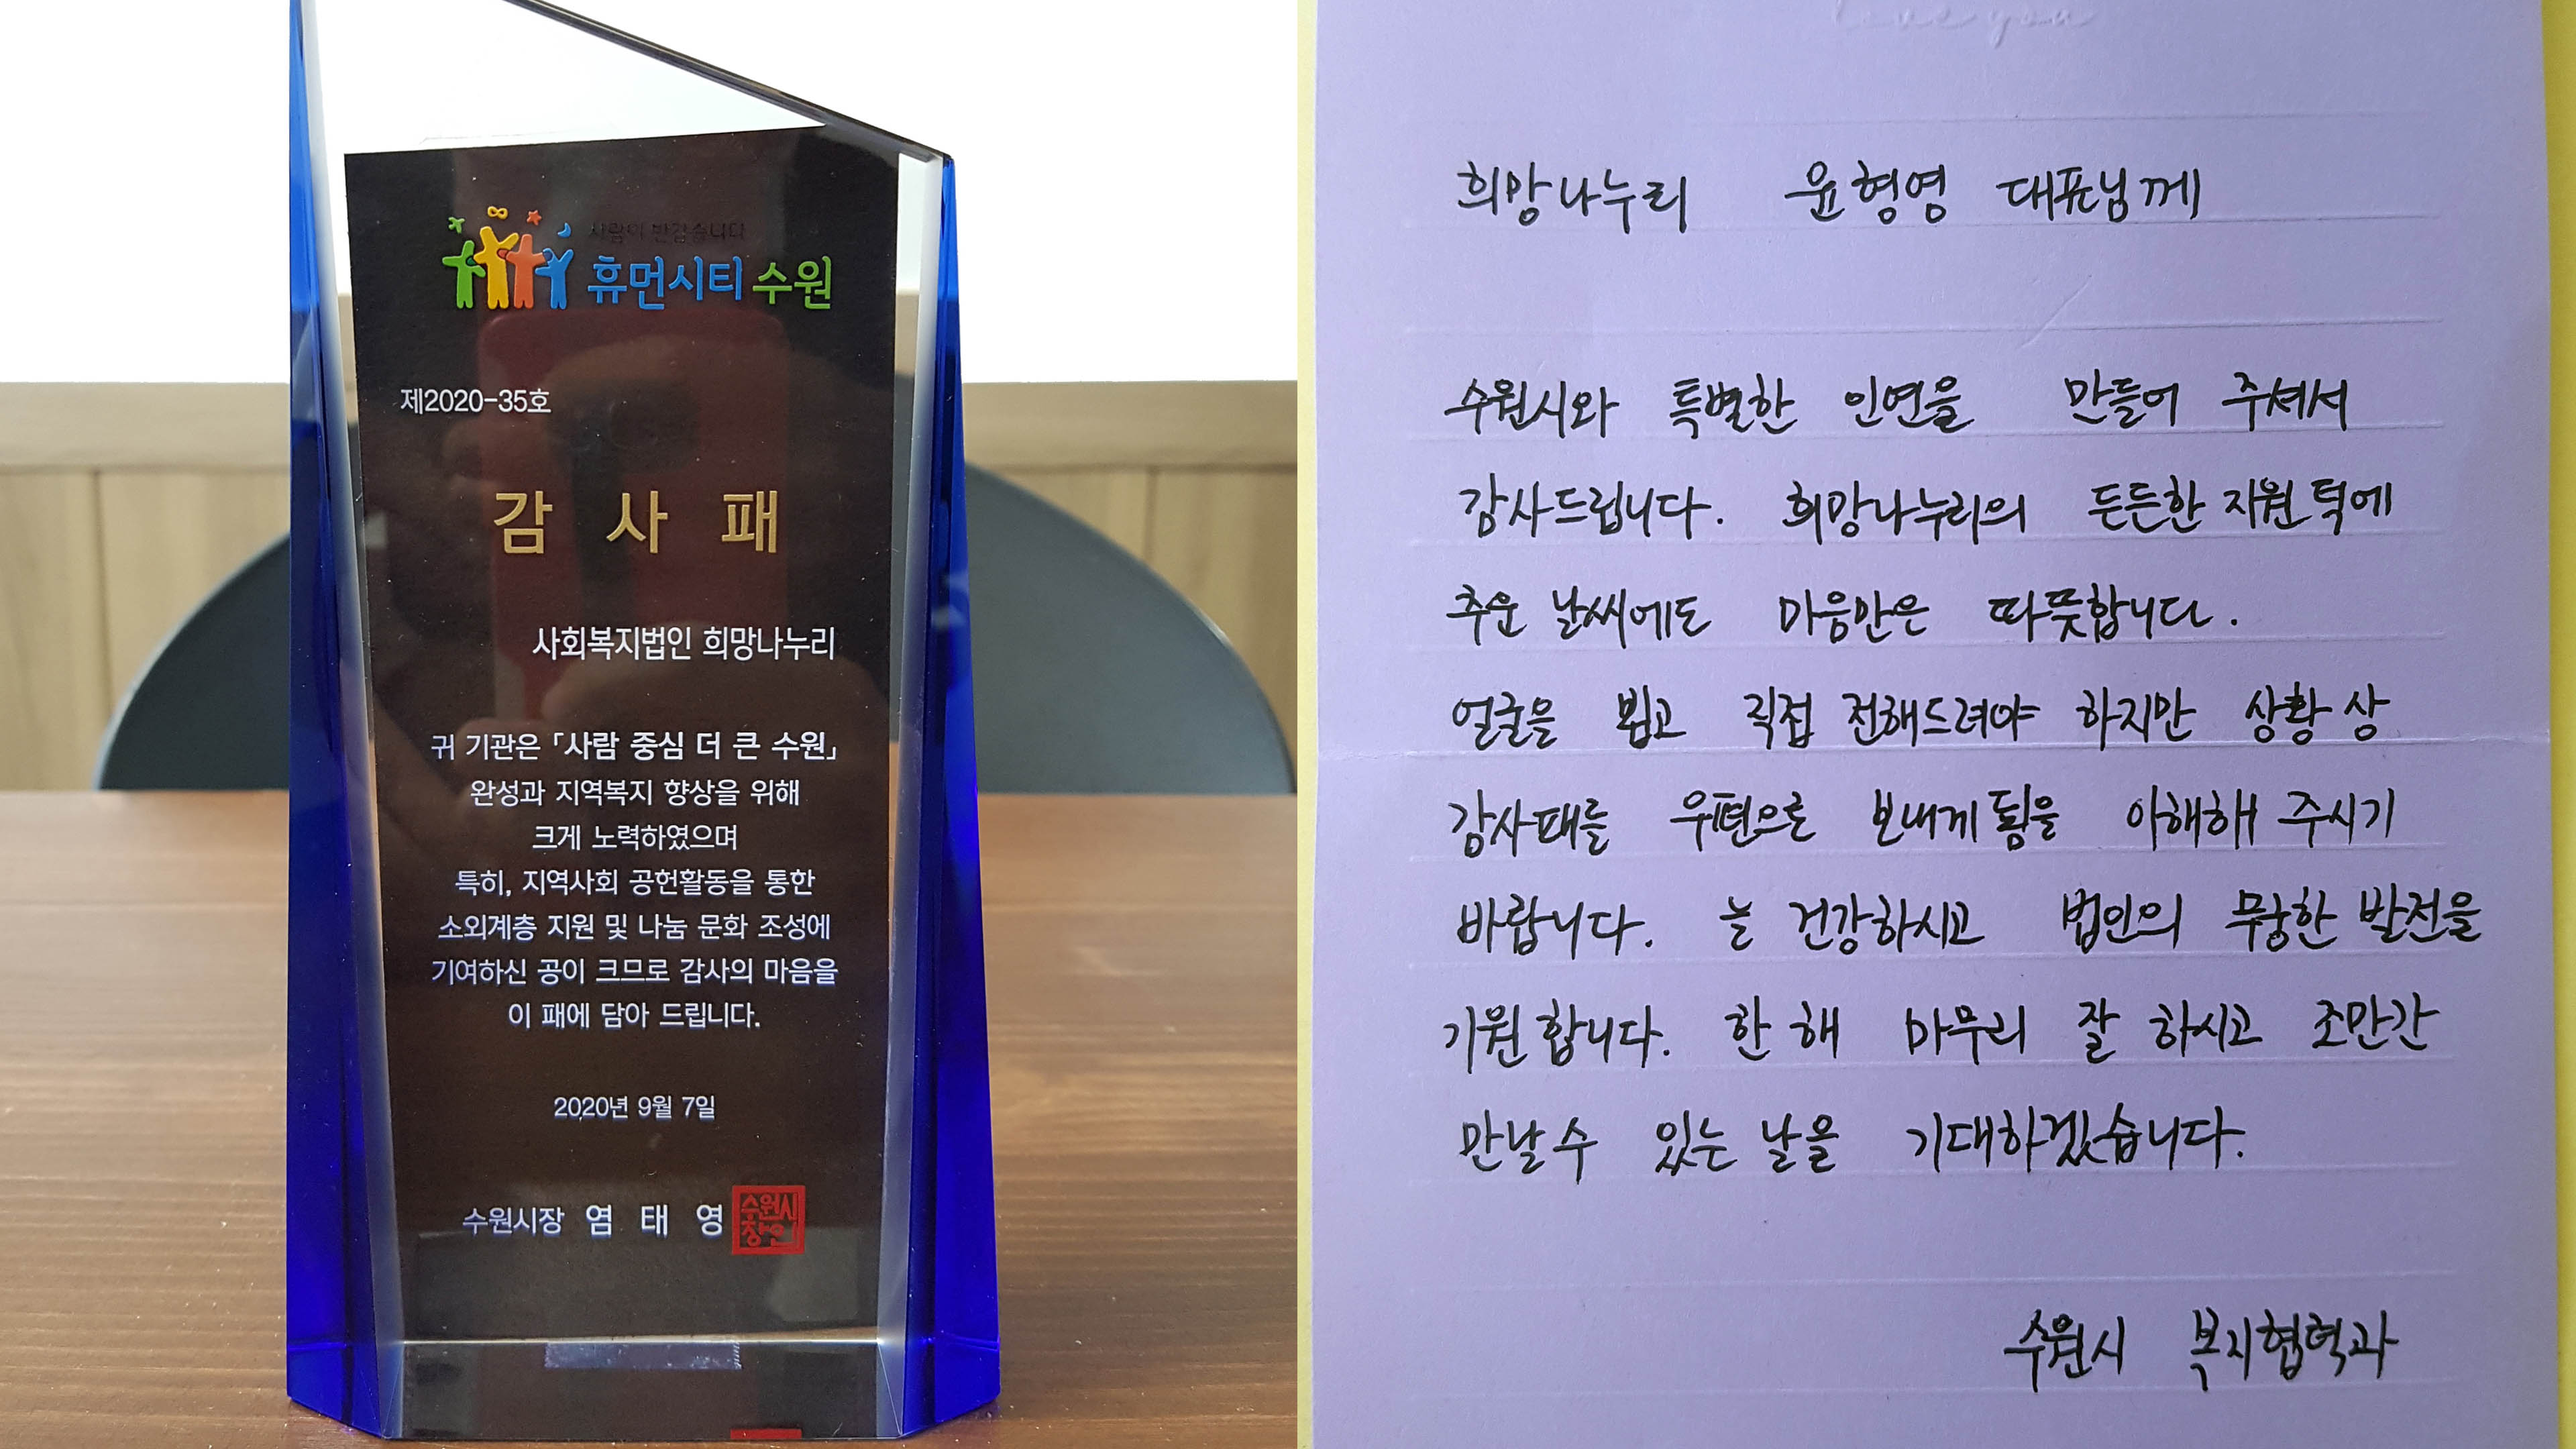 사람이 반갑습니다
휴먼시티 수원
제2020-35호
감 사 패
사회복지법인 희망나누리
귀 기관은 「사람 중심 더 큰 수원」
완성과 지역복지 향상을 위해
크게 노력하였으며
특히, 지역사회 공헌활동을 통한
소외계층 지원 및 나눔 문화 조성에
기여하신 공이 크므로 감사의 마음을
이 패에 담아 드립니다.
2020년 9월 7일
수원시장 염 태 영
수원시
장인
love you
희망나누리 윤형영 대표님께
수원시와 특별한 인연을 만들어 주셔서
감사드립니다. 희망나누리의 든든한 지원 덕에
추운 날씨에도 마음만은 따뜻합니다.
얼굴을 뵙고 직접 전해드려야 하지만 상황 상
감사패를 우편으로 보내게 됨을 이해해 주시기
바랍니다. 늘 건강하시고 법인의 무궁한 발전을
기원합니다. 한 해 마무리 잘 하시고 조만간
만날 수 있는 날을 기대하겠습니다.
수원시 복지협력과